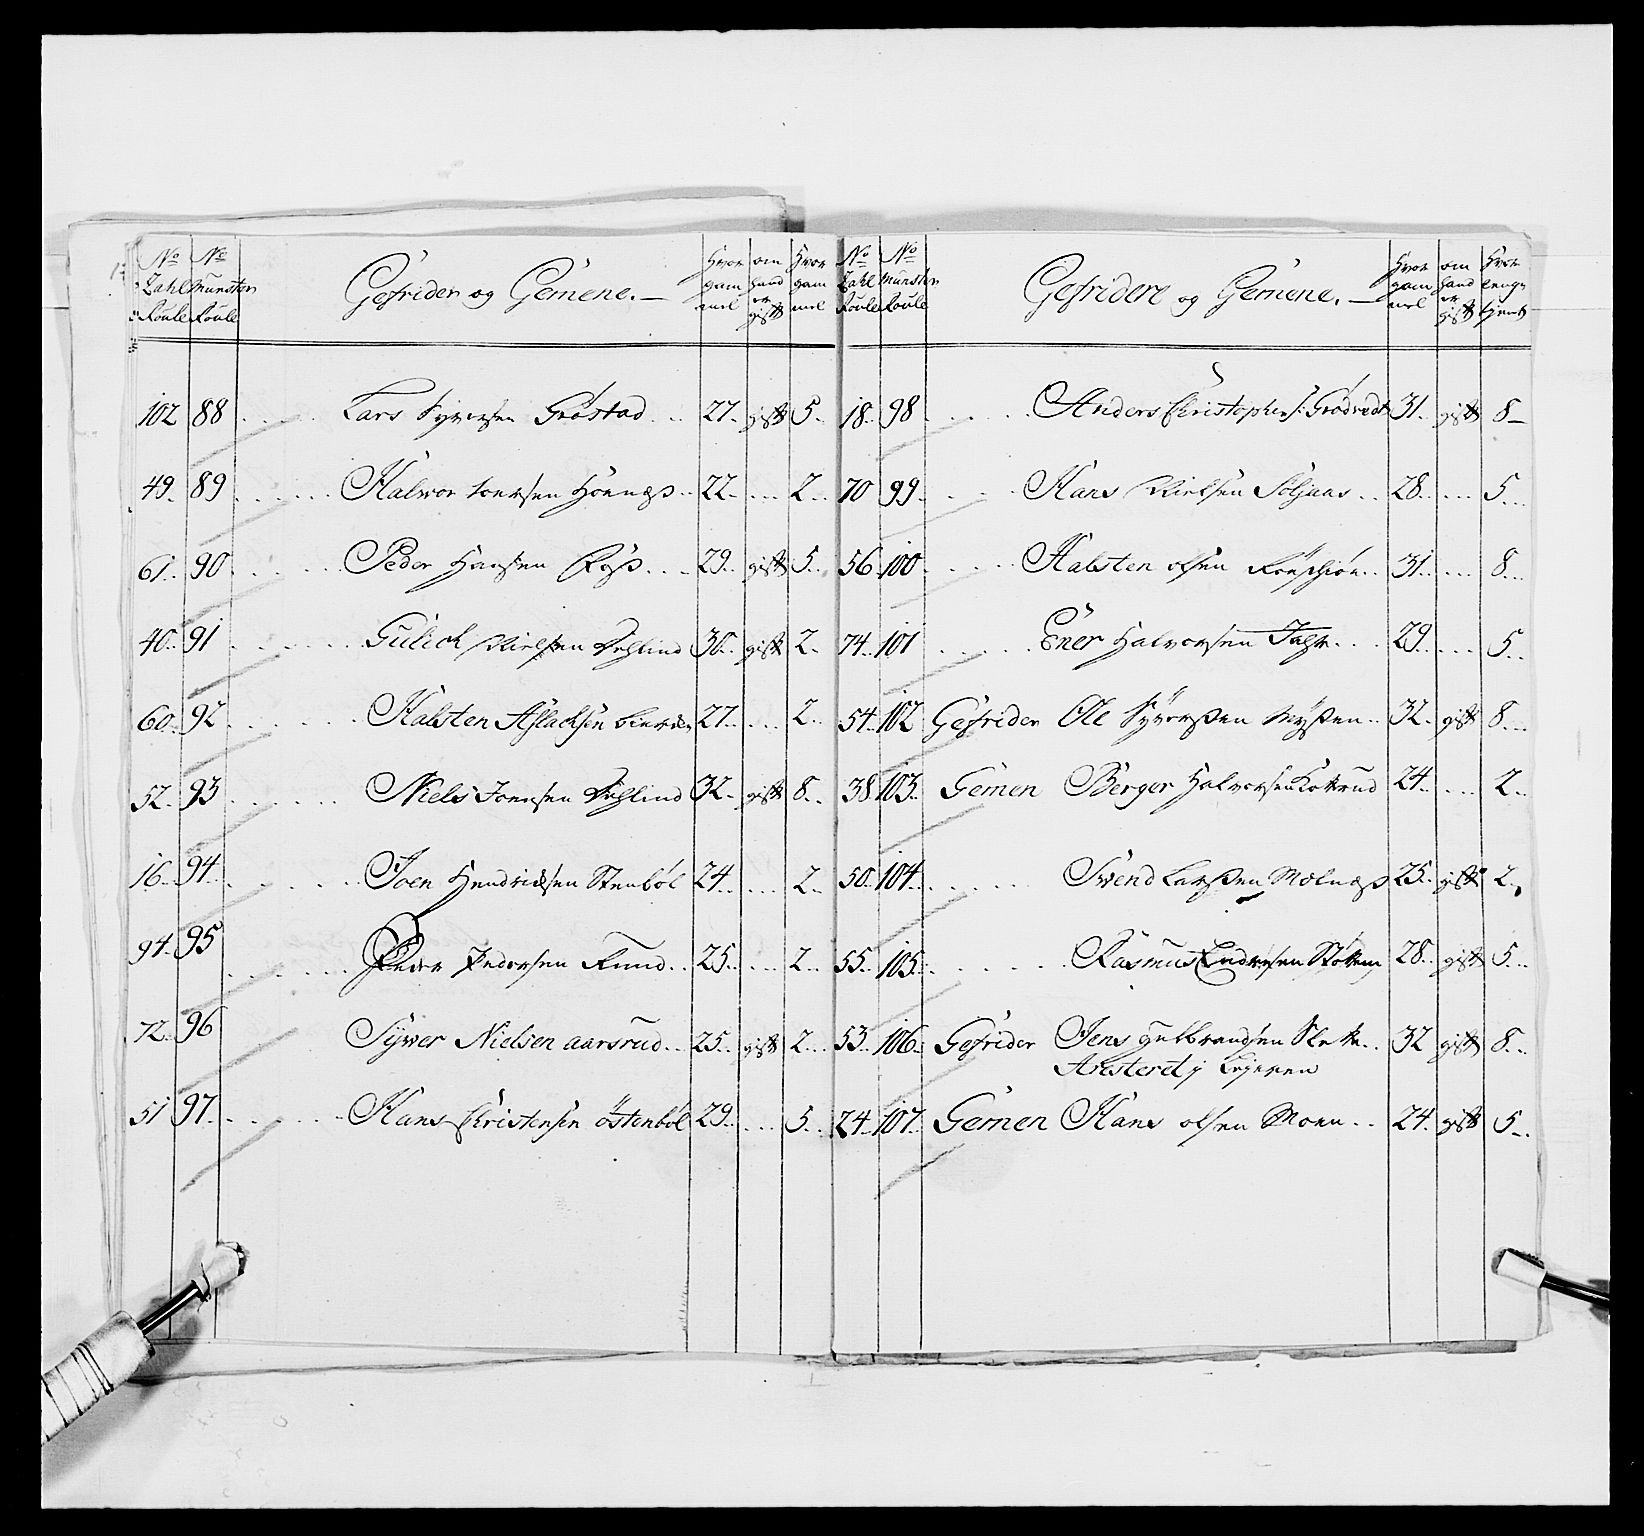 No Zahl Roulle No Munster Roulle Gefrider og Gemene. — Hvor gam mel om hand er gift Hvor gam mel
102 88 Lars Syversen Gröstad 27 gift 5
49 89 Halwor 22 2
61 90 Peder Hansen 29 gift 5
40 91 Gulich Nielsen 30 gift 2
60 92 Halsten Aslachsen 27 2
52 93 Niels Joensen 32 gift 8
16 94 Joen Hendrichsen Stenböl 24 2
94 95 Peder Pedersen 25 2
72 96 Sÿwer Nielsen aarsrud 25 gift 2
51 97 Hans Christensen östenböl 29 5
No Zahl Roulle No Munster Roulle Gefridere og Gemene. — Hvor gam mel om hand er gift Hvor lenge tjent
18 98 Anders Christophers: 31 gift 8
70 99 Hans Nielsen 28 5
56 100 Halsten olsen 31 8
74 101 Ener Halvorsen 29 5
54 102 Gefrider Ole Sÿverßen Mÿßen 32 gift 8
38 103 Gemen Berger Halvorsen 24 2
50 104 Swend Larßen 25 gift 2
55 105 Rasmus 28 gift 5
53 106 Gefrider Jens gulbrandsen 32 gift 8
Aresteret i
24 107 Gemen Hans olsen Moen 24 gift 5